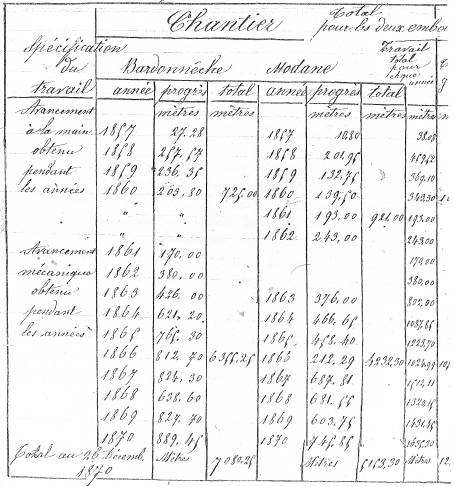 Chantier Total
pour les deux embou
Spécification Travail
du Bardonnèche Modane total
travail pour
chque
année progrès total année progrès total année
Avancement mètres mètres mètres mètres mètres
à la main 1857 27.28 1857 10.80 38.08
obtenu 1858 257.57 1858 201.95 459.50
pendant 1859 236.35 1859 132.75 369.10
les années 1860 203.80 725.00 1860 139.50 343.30
" " 1861 193.00 921.00 193.00
" " 1862 243.00 243.00
Avancement 1861 170.00 170.00
mécanique 1862 380.00 380.00
obtenu 1863 426.00 1863 376.00 802.00
pendant 1864 621.20 1864 466.65 1087.85
les années 1865 765.30 1865 458.40 1223.70
1866 812.70 6355.25 1866 212.29 4232.30 1024.99
1867 824.30 1867 687.81 1512.11
1868 638.60 1868 681.55 1320.15
1869 827.70 1869 603.75 1431.45
1870 889.45 1870 745.85 1635.30
Total au 26 Décemb. Mètres 7080.25 Mètres 5153.30 Mètres
1870